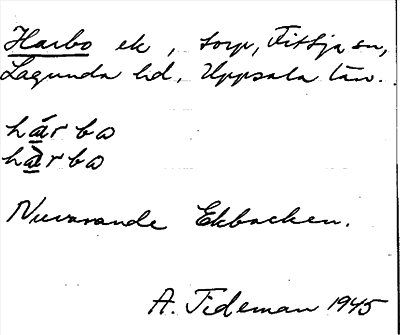 Harbo ek, torp, Fittja sn,
Lagunda hd, Uppsala län.
hárbo
hàrbo
Nuvarande Ekbacken.
A. Tideman 1945